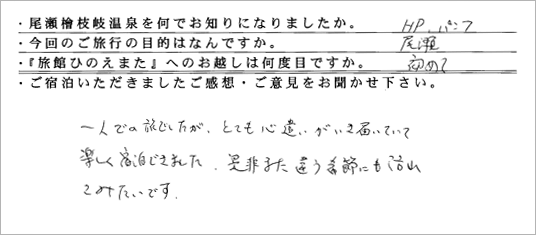 ・尾瀬檜枝岐温泉を何でお知りになりましたか。 HP.パンフ
・今回のご旅行の目的はなんですか。 尾瀬
・『旅館ひのえまた』へのお越しは何度目ですか。 初めて
・ご宿泊いただきましたご感想・ご意見をお聞かせ下さい。
一人での旅でしたが、とても心遣いがいき届いていて
楽しく宿泊できました。是非また違う季節にも
てみたいです。